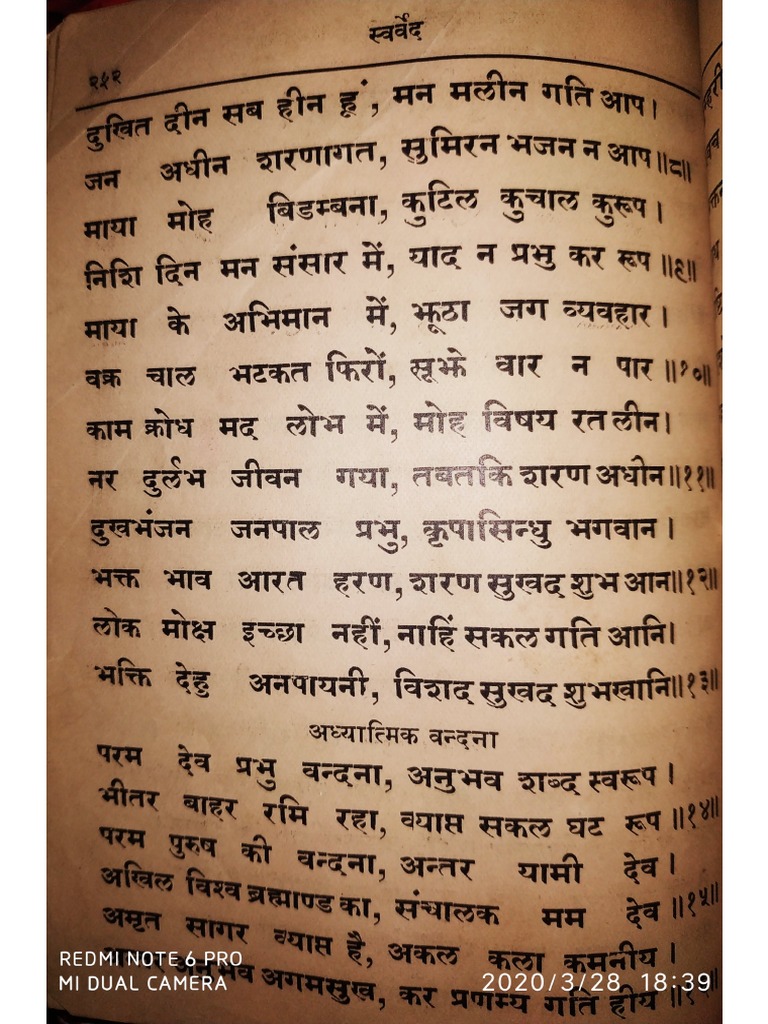 स्वर्वेद
२५२
दुखित दीन सब हीन हूं, मन मलीन गति आप।
जन अधीन शरणागत, सुमिरन भजन न आप॥८॥
माया मोह बिडम्बना, कुटिल कुचाल कुरूप।
निशि दिन मन संसार में, याद न प्रभु कर रूप॥९॥
माया के अभिमान में, झूठा जग व्यवहार।
वक्र चाल भटकत फिरों, सूझे वार न पार॥१०॥
काम क्रोध मद लोभ में, मोह विषय रत लीन।
नर दुर्लभ जीवन गया, तबतकि शरण अधीन॥११॥
दुखभंजन जनपाल प्रभु, कृपासिन्धु भगवान।
भक्त भाव आरत हरण, शरण सुखद शुभ आन॥१२॥
लोक मोक्ष इच्छा नहीं, नाहिं सकल गति आनि।
भक्ति देहु अनपायनी, विशद सुखद शुभखानि॥१३॥
अध्यात्मिक वन्दना
परम देव प्रभु वन्दना, अनुभव शब्द स्वरूप।
भीतर बाहर रमि रहा, व्याप्त सकल घट रूप॥१४॥
परम पुरुष की वन्दना, अन्तर यामी देव।
अखिल विश्व ब्रह्माण्ड का, संचालक मम देव॥१५॥
अमृत सागर व्याप्त है, अकल कला कमनीय।
अनुभव अगमसुख, कर प्रणम्य गति हीय
REDMI NOTE 6 PRO
MI DUAL CAMERA
2020/3/28 18:39